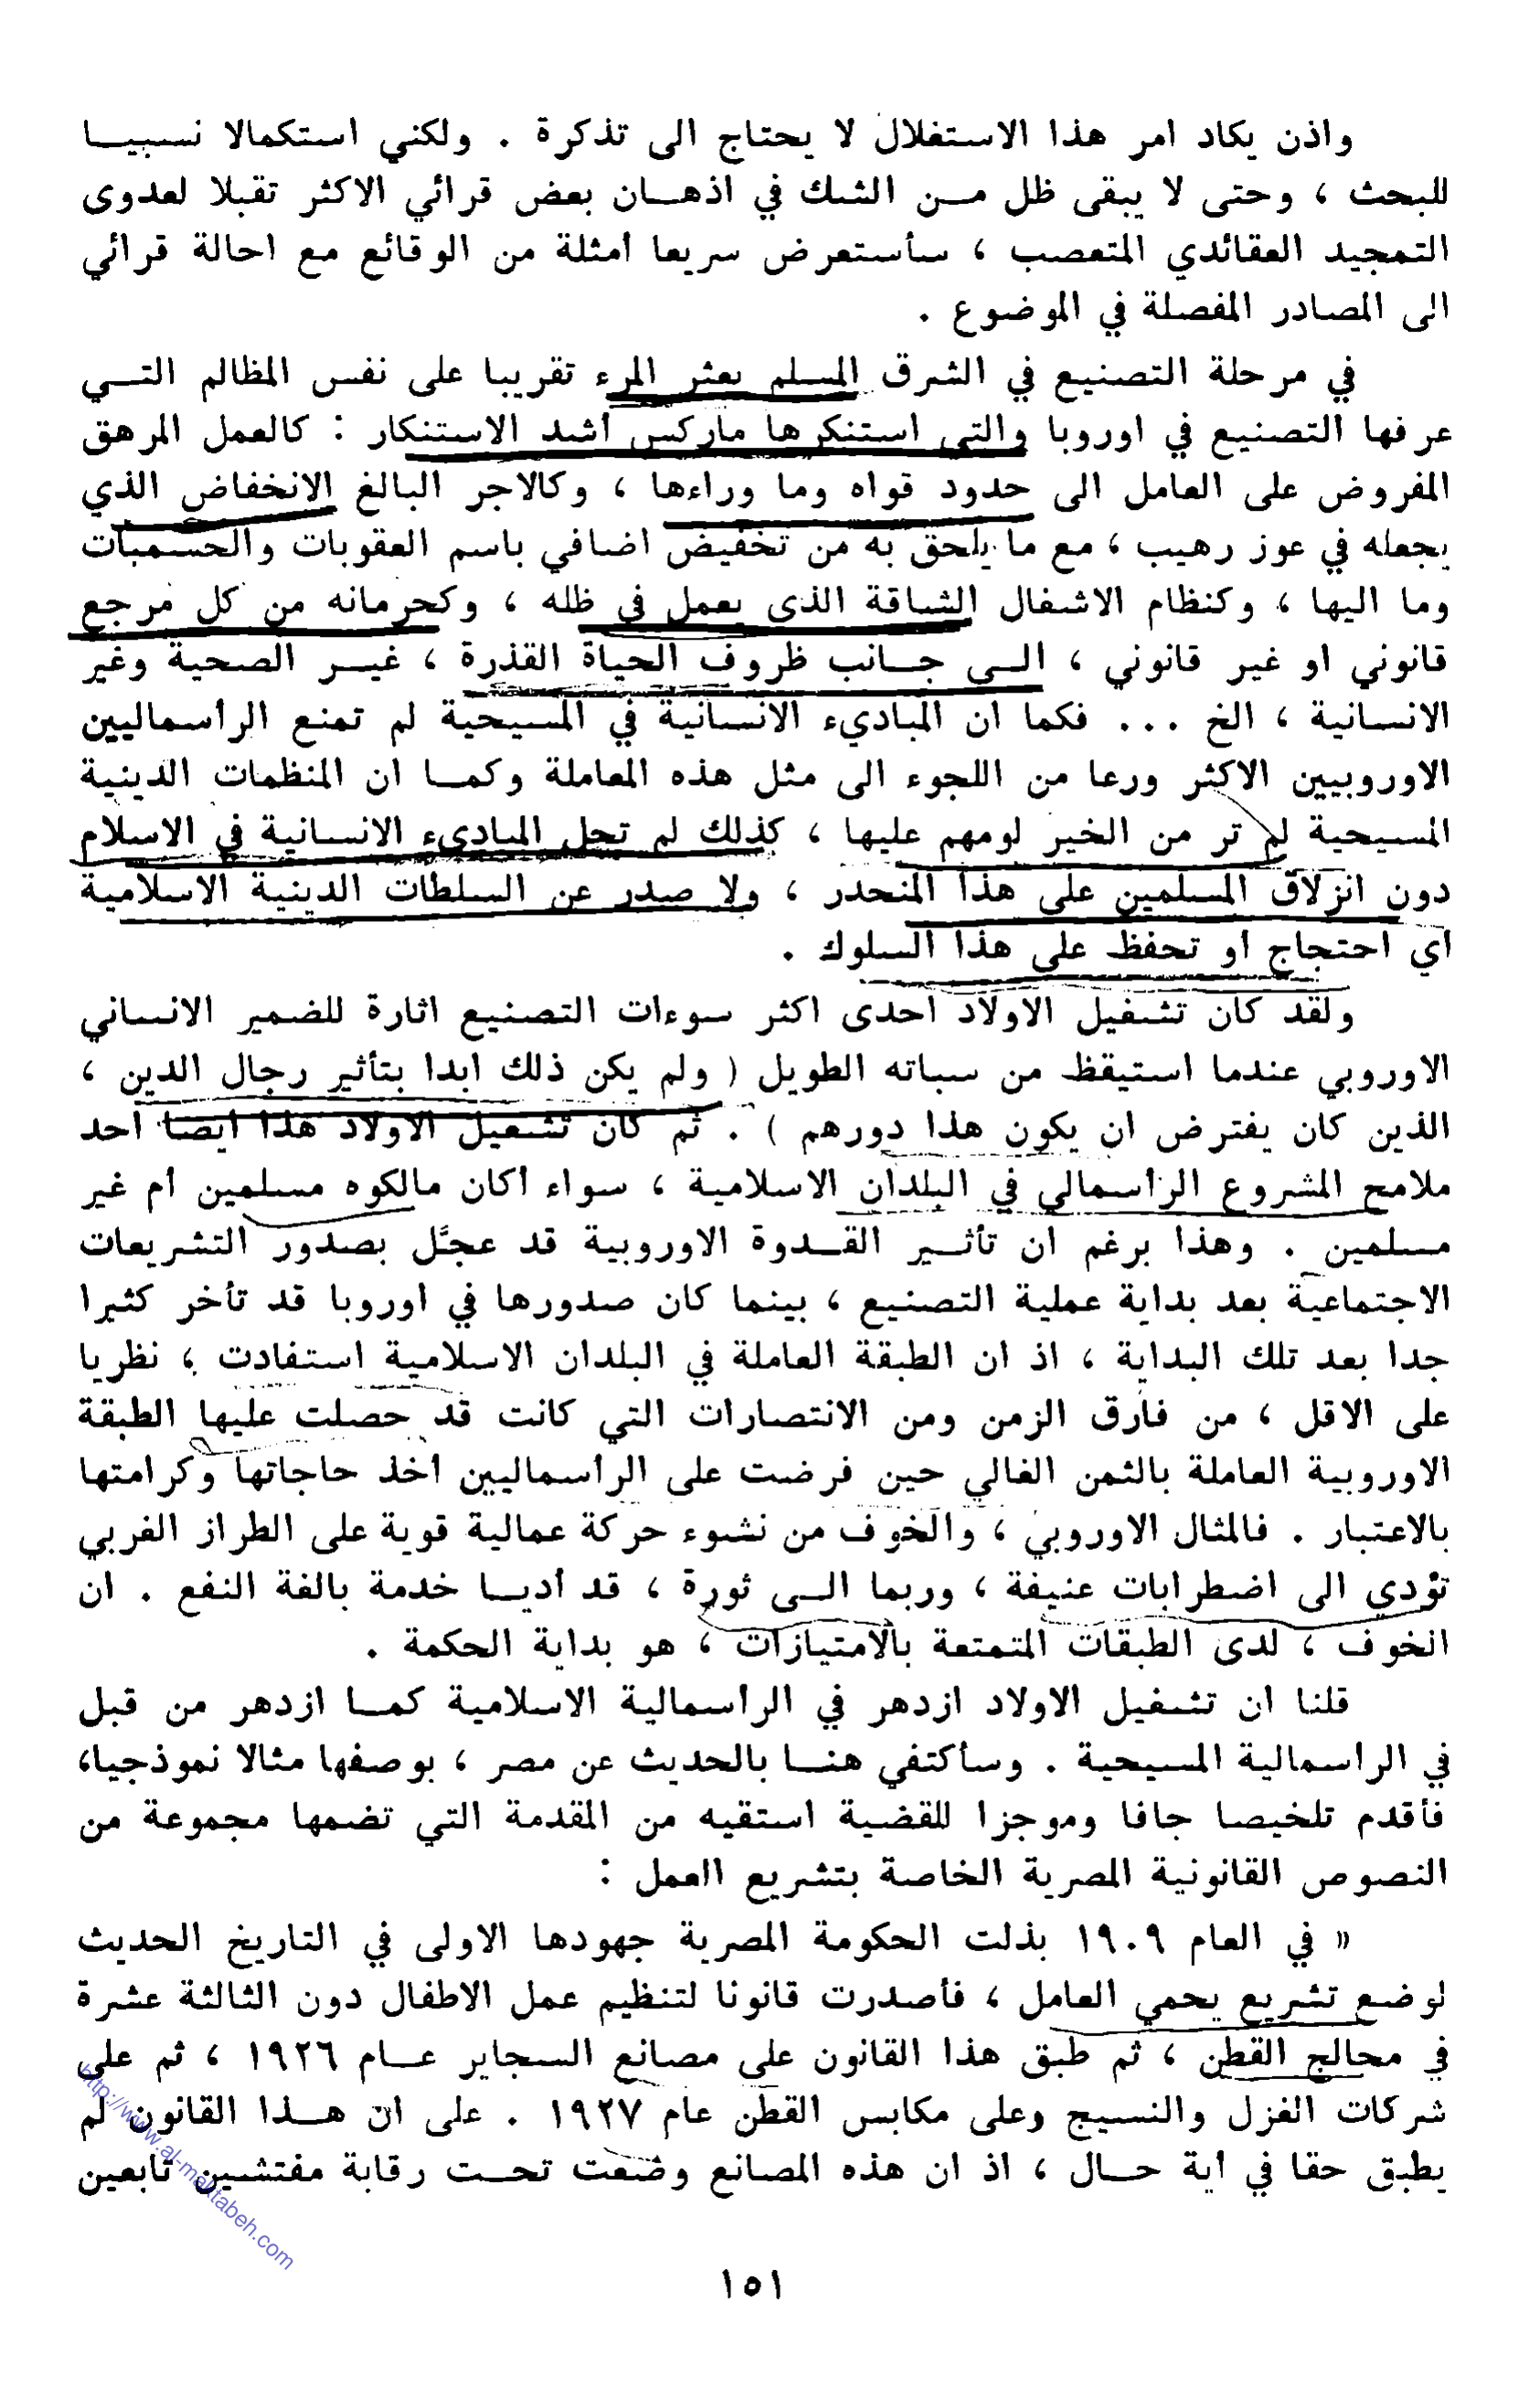 واذن يكاد امر هذا الاستغلال لا يحتاج الى تذكرة . ولكني استكمالا نسبيا
للبحث ، وحتى لا يبقى ظل من الشك في اذهان بعض قرائي الاكثر تقبلا لعدوى
التمجيد العقائدي المتعصب ، سأستعرض سريعا أمثلة من الوقائع مع احالة قرائي
الى المصادر المفصلة في الموضوع .
في مرحلة التصنيع في الشرق المسلم يعثر المرء تقريبا على نفس المظالم التي
عرفها التصنيع في اوروبا والتي استنكرها ماركس أشد الاستنكار : كالعمل المرهق
المفروض على العامل الى حدود قواه وما وراءها ، وكالاجر البالغ الانخفاض الذي
يجعله في عوز رهيب ، مع ما يلحق به من تخفيض اضافي باسم العقوبات والحسميات
وما اليها ، وكنظام الاشغال الشاقة الذي يعمل في ظله ، وكحرمانه من كل مرجع
قانوني او غير قانوني ، الى جانب ظروف الحياة القذرة ، غير الصحية وغير
الانسانية ، الخ ... فكما ان المباديء الانسانية في المسيحية لم تمنع الرأسماليين
الاوروبيين الاكثر ورعا من اللجوء الى مثل هذه المعاملة وكما ان المنظمات الدينية
المسيحية لم تر من الخير لومهم عليها ، كذلك لم تحل المباديء الانسانية في الاسلام
دون انزلاق المسلمين على هذا المنحدر ، ولا صدر عن السلطات الدينية الاسلامية
أي احتجاج أو تحفظ على هذا السلوك .
ولقد كان تشغيل الاولاد احدى اكثر سوءات التصنيع اثارة للضمير الانساني
الاوروبي عندما استيقظ من سباته الطويل ( ولم يكن ذلك ابدا بتأثير رجال الدين ،
الذين كان يفترض ان يكون هذا دورهم ) . ثم كان تشغيل الاولاد هذا ايضا احد
ملامح المشروع الرأسمالي في البلدان الاسلامية ، سواء أكان مالكوه مسلمين أم غير
مسلمين . وهذا برغم ان تأثير القدوة الاوروبية قد عجَّل بصدور التشريعات
الاجتماعية بعد بداية عملية التصنيع ، بينما كان صدورها في اوروبا قد تأخر كثيرا
جدا بعد تلك البداية ، اذ ان الطبقة العاملة في البلدان الاسلامية استفادت ، نظريا
على الاقل ، من فارق الزمن ومن الانتصارات التي كانت قد حصلت عليها الطبقة
الاوروبية العاملة بالثمن الغالي حين فرضت على الرأسماليين أخذ حاجاتها وكرامتها
بالاعتبار . فالمثال الاوروبي ، والخوف من نشوء حركة عمالية قوية على الطراز الغربي
تؤدي الى اضطرابات عنيفة ، وربما الى ثورة ، قد أديا خدمة بالغة النفع . ان
الخوف ، لدى الطبقات المتمتعة بالامتيازات ، هو بداية الحكمة .
قلنا ان تشغيل الاولاد ازدهر في الرأسمالية الاسلامية كما ازدهر من قبل
في الراسمالية المسيحية . وسأكتفي هنا بالحديث عن مصر ، بوصفها مثالا نموذجيا،
فأقدم تلخيصا جافا وموجزا للقضية استقيه من المقدمة التي تضمها مجموعة من
النصوص القانونية المصرية الخاصة بتشريع العمل :
« في العام ١٩٠٩ بذلت الحكومة المصرية جهودها الاولى في التاريخ الحديث
لوضع تشريع يحمي العامل ، فأصدرت قانونا لتنظيم عمل الاطفال دون الثالثة عشرة
في محالج القطن ، ثم طبق هذا القانون على مصانع السجاير عام ١٩٢٦ ، ثم على
شركات الغزل والنسيج وعلى مكابس القطن عام ١٩٢٧ . على ان هذا القانون لم
يطبق حقا في أية حال ، اذ ان هذه المصانع وضعت تحت رقابة مفتشين تابعين
http://www.al-maktabeh.com
١٥١